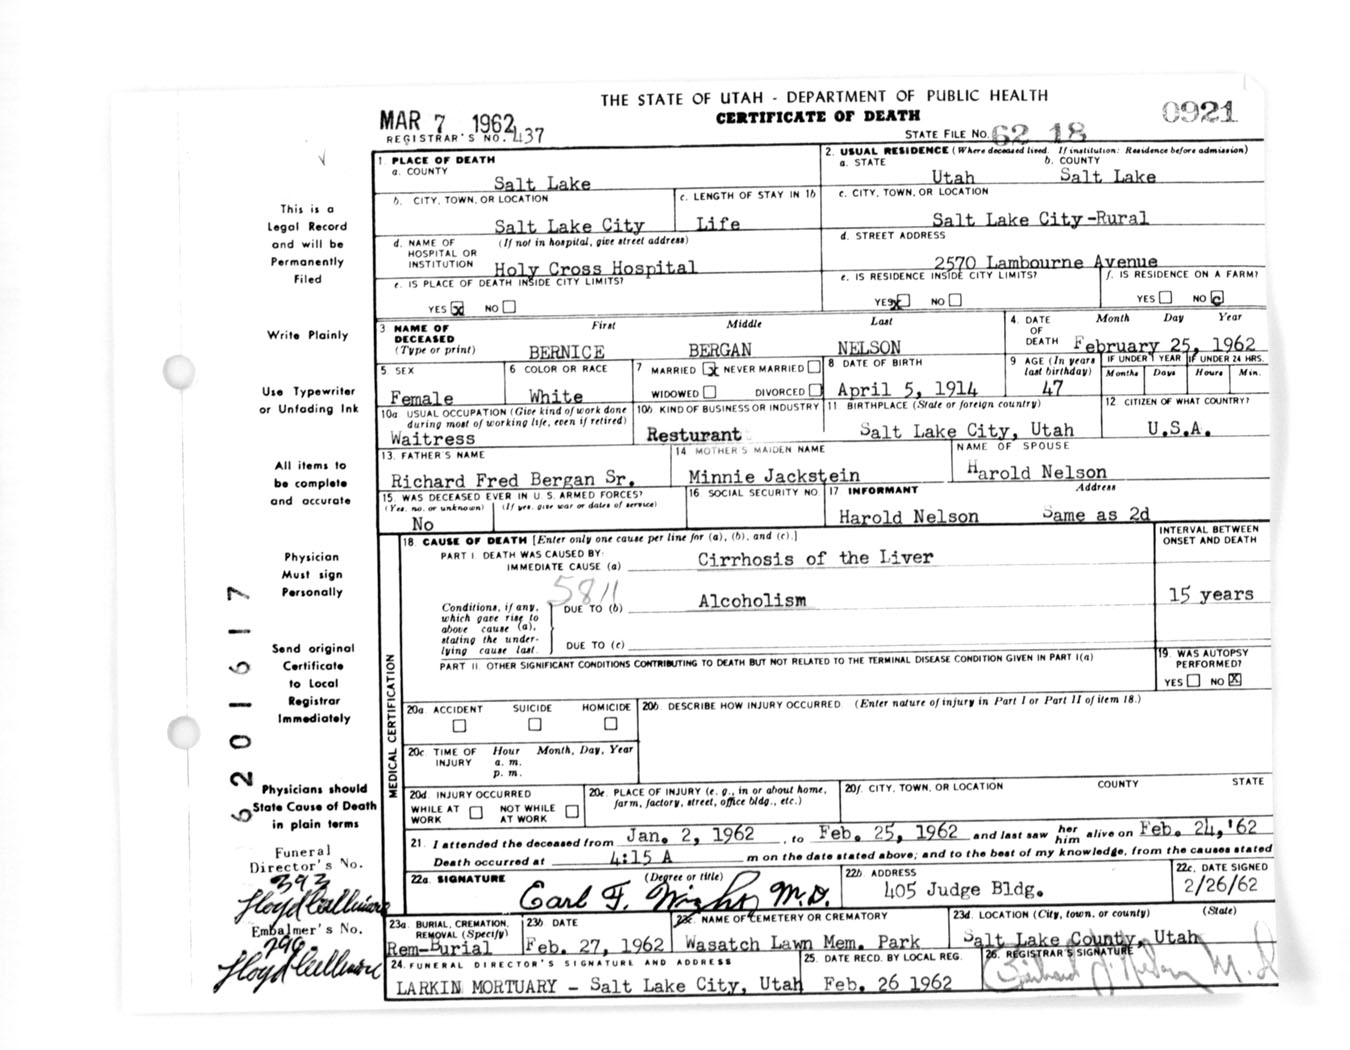 THE STATE OF UTAH - DEPARTMENT OF PUBLIC HEALTH
CERTIFICATE OF DEATH
0921
MAR 7 1962
REGISTRAR'S NO. 437
STATE FILE NO. 62 18
1. PLACE OF DEATH
a. COUNTY
Salt Lake
2. USUAL RESIDENCE (Where deceased lived. If institution: Residence before admission)
a. STATE
Utah
b. COUNTY
Salt Lake
b. CITY, TOWN, OR LOCATION
Salt Lake City
c. LENGTH OF STAY IN 1b
Life
c. CITY, TOWN, OR LOCATION
Salt Lake City-Rural
d. NAME OF HOSPITAL OR INSTITUTION (If not in hospital, give street address)
Holy Cross Hospital
d. STREET ADDRESS
2570 Lambourne Avenue
e. IS PLACE OF DEATH INSIDE CITY LIMITS?
YES X NO
e. IS RESIDENCE INSIDE CITY LIMITS?
YES X NO
f. IS RESIDENCE ON A FARM?
YES NO
3. NAME OF DECEASED (Type or print)
First Middle Last
BERNICE BERGAN NELSON
4. DATE OF DEATH Month Day Year
February 25, 1962
5 SEX
Female
6 COLOR OR RACE
White
7 MARRIED X NEVER MARRIED
WIDOWED DIVORCED
8 DATE OF BIRTH
April 5, 1914
9 AGE (In years last birthday)
47
IF UNDER 1 YEAR IF UNDER 24 HRS.
Months Days Hours Min.
10a USUAL OCCUPATION (Give kind of work done during most of working life, even if retired)
Waitress
10b KIND OF BUSINESS OR INDUSTRY
Resturant
11 BIRTHPLACE (State or foreign country)
Salt Lake City, Utah
12 CITIZEN OF WHAT COUNTRY?
U.S.A.
13. FATHER'S NAME
Richard Fred Bergan Sr.
14 MOTHER'S MAIDEN NAME
Minnie Jackstein
NAME OF SPOUSE
Harold Nelson
15. WAS DECEASED EVER IN U. S. ARMED FORCES?
(Yes, no, or unknown) (If yes, give war or dates of service)
No
16. SOCIAL SECURITY NO.
17 INFORMANT Address
Harold Nelson Same as 2d
18. CAUSE OF DEATH [Enter only one cause per line for (a), (b), and (c).]
INTERVAL BETWEEN ONSET AND DEATH
PART I. DEATH WAS CAUSED BY:
IMMEDIATE CAUSE (a) Cirrhosis of the Liver
5811
Conditions, if any, which gave rise to above cause (a), stating the underlying cause last.
DUE TO (b) Alcoholism
15 years
DUE TO (c)
PART II. OTHER SIGNIFICANT CONDITIONS CONTRIBUTING TO DEATH BUT NOT RELATED TO THE TERMINAL DISEASE CONDITION GIVEN IN PART I(a)
19. WAS AUTOPSY PERFORMED?
YES NO X
MEDICAL CERTIFICATION
20a. ACCIDENT SUICIDE HOMICIDE
20b. DESCRIBE HOW INJURY OCCURRED. (Enter nature of injury in Part I or Part II of item 18.)
20c. TIME OF INJURY Hour Month, Day, Year
a. m.
p. m.
20d. INJURY OCCURRED
WHILE AT WORK NOT WHILE AT WORK
20e. PLACE OF INJURY (e. g., in or about home, farm, factory, street, office bldg., etc.)
20f. CITY, TOWN, OR LOCATION COUNTY STATE
21. I attended the deceased from Jan. 2, 1962, to Feb. 25, 1962 and last saw her him alive on Feb. 24,'62
Death occurred at 4:15 A m on the date stated above; and to the best of my knowledge, from the causes stated
22a. SIGNATURE (Degree or title)
Earl F. Wight M.D.
22b. ADDRESS
405 Judge Bldg.
22c. DATE SIGNED
2/26/62
23a. BURIAL, CREMATION, REMOVAL (Specify)
Rem-Burial
23b DATE
Feb. 27, 1962
23c. NAME OF CEMETERY OR CREMATORY
Wasatch Lawn Mem. Park
23d. LOCATION (City, town, or county) (State)
Salt Lake County, Utah
24. FUNERAL DIRECTOR'S SIGNATURE AND ADDRESS
LARKIN MORTUARY - Salt Lake City, Utah
25. DATE RECD. BY LOCAL REG.
Feb. 26 1962
26. REGISTRAR'S SIGNATURE
This is a
Legal Record
and will be
Permanently
Filed
Write Plainly
Use Typewriter
or Unfading Ink
All items to
be complete
and accurate
Physician
Must sign
Personally
Send original
Certificate
to Local
Registrar
Immediately
Physicians should
State Cause of Death
in plain terms
Funeral
Director's No.
393
Embalmer's No.
6201617